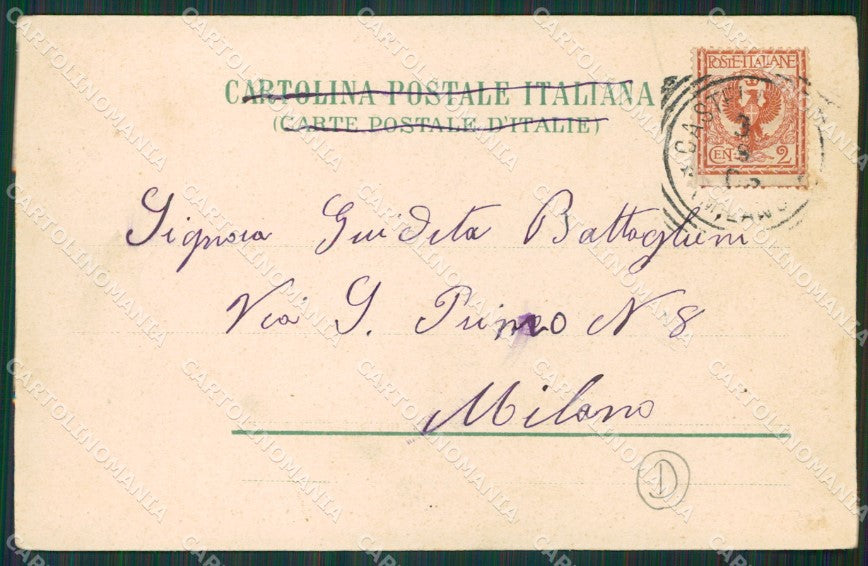 CARTOLINA POSTALE ITALIANA
(CARTE POSTALE D'ITALIE)
POSTE-ITALIANE
CEN. 2
3
MILANO
Signora Guidita Battaglini
Via S. Primo N 8
Milano
D
CARTOLINOMANIA